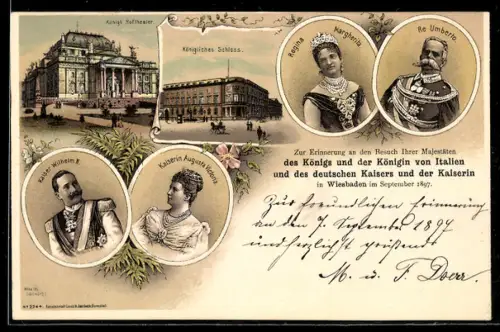 Königl. Hoftheater.
Königliches Schloss.
Regina Margherita.
Re Umberto.
Kaiser Wilhelm II.
Kaiserin Augusta Victoria.
Zur Erinnerung an den Besuch Ihrer Majestäten
des Königs und der Königin von Italien
und des deutschen Kaisers und der Kaiserin
in Wiesbaden im September 1897.
Zur freundlichen Erinnerung
an den 7. September 1897
und herzlichst grüßend
M. u. F.